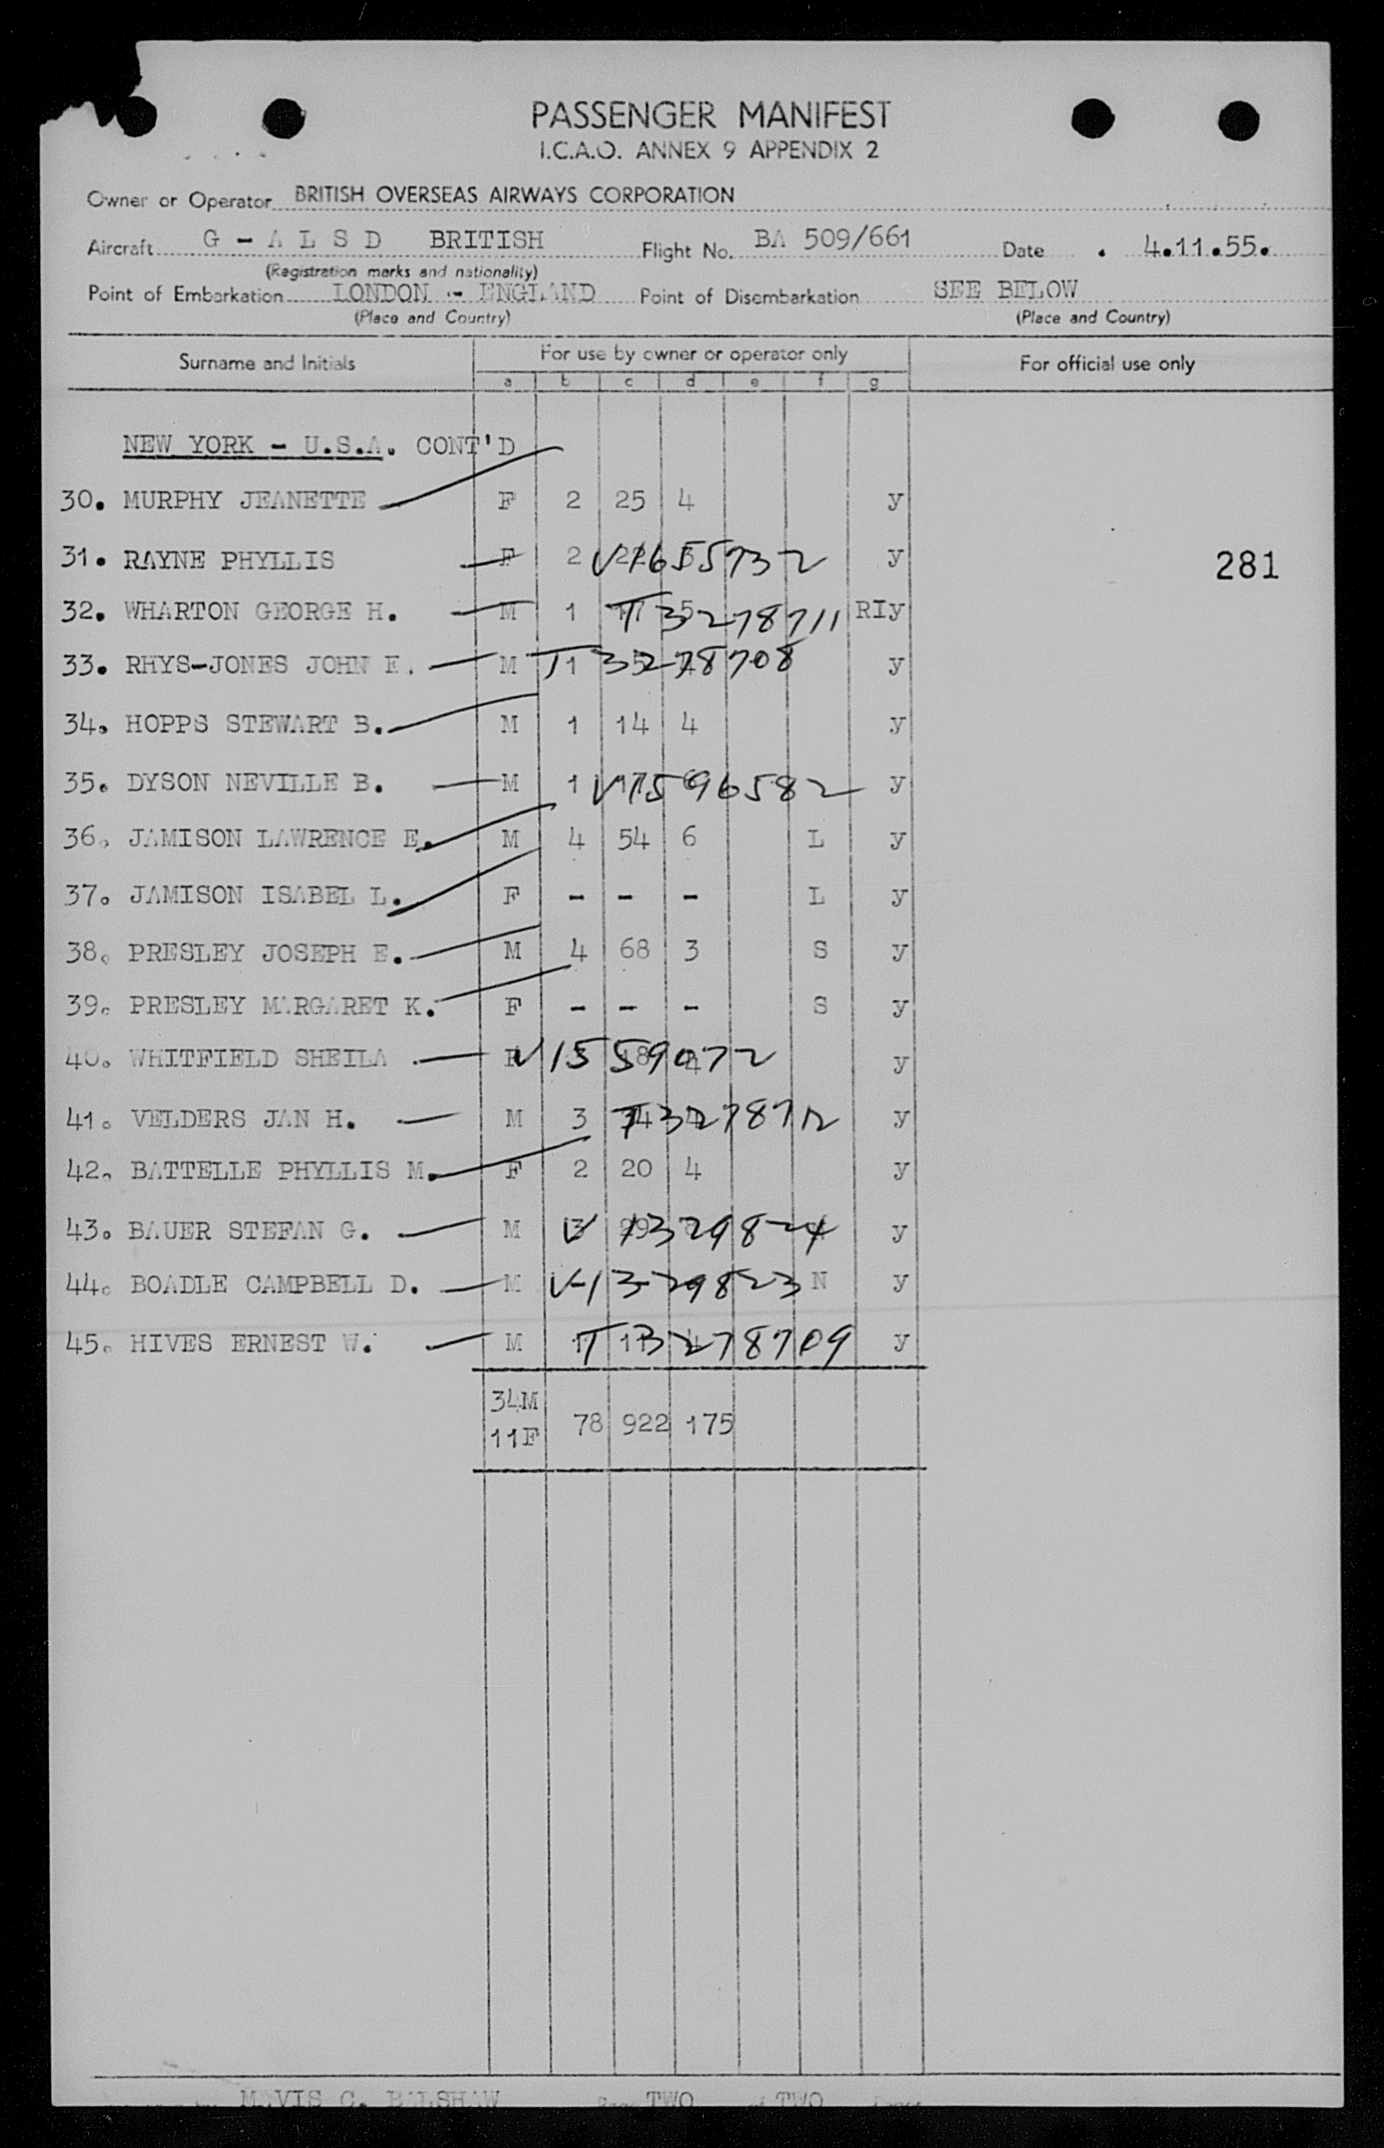 PASSENGER MANIFEST
I.C.A.O. ANNEX 9 APPENDIX 2
Owner or Operator BRITISH OVERSEAS AIRWAYS CORPORATION
Aircraft G - A L S D BRITISH Flight No. BA 509/661 Date 4.11.55.
(Registration marks and nationality)
Point of Embarkation LONDON - ENGLAND Point of Disembarkation SEE BELOW
(Place and Country) (Place and Country)
Surname and Initials For use by owner or operator only For official use only
a b c d e f g
NEW YORK - U.S.A. CONT'D
30. MURPHY JEANETTE F 2 25 4 y
31. RAYNE PHYLLIS F 2 V1655732 y
281
32. WHARTON GEORGE H. M 1 T3278711 RIy
33. RHYS-JONES JOHN E. M 1 T3278708 y
34. HOPPS STEWART B. M 1 14 4 y
35. DYSON NEVILLE B. M 1 V1596582 y
36. JAMISON LAWRENCE E. M 4 54 6 L y
37. JAMISON ISABEL L. F - - - L y
38. PRESLEY JOSEPH E. M 4 68 3 S y
39. PRESLEY MARGARET K. F - - - S y
40. WHITFIELD SHEILA F V1559072 y
41. VELDERS JAN H. M 3 T3278712 y
42. BATTELLE PHYLLIS M. F 2 20 4 y
43. BAUER STEFAN G. M 3 V1329824 y
44. BOADLE CAMPBELL D. M V-1329823 N y
45. HIVES ERNEST W. M 1 T3278709 y
34M
11F 78 922 175
MAVIS C. BALSHAW Page TWO of TWO